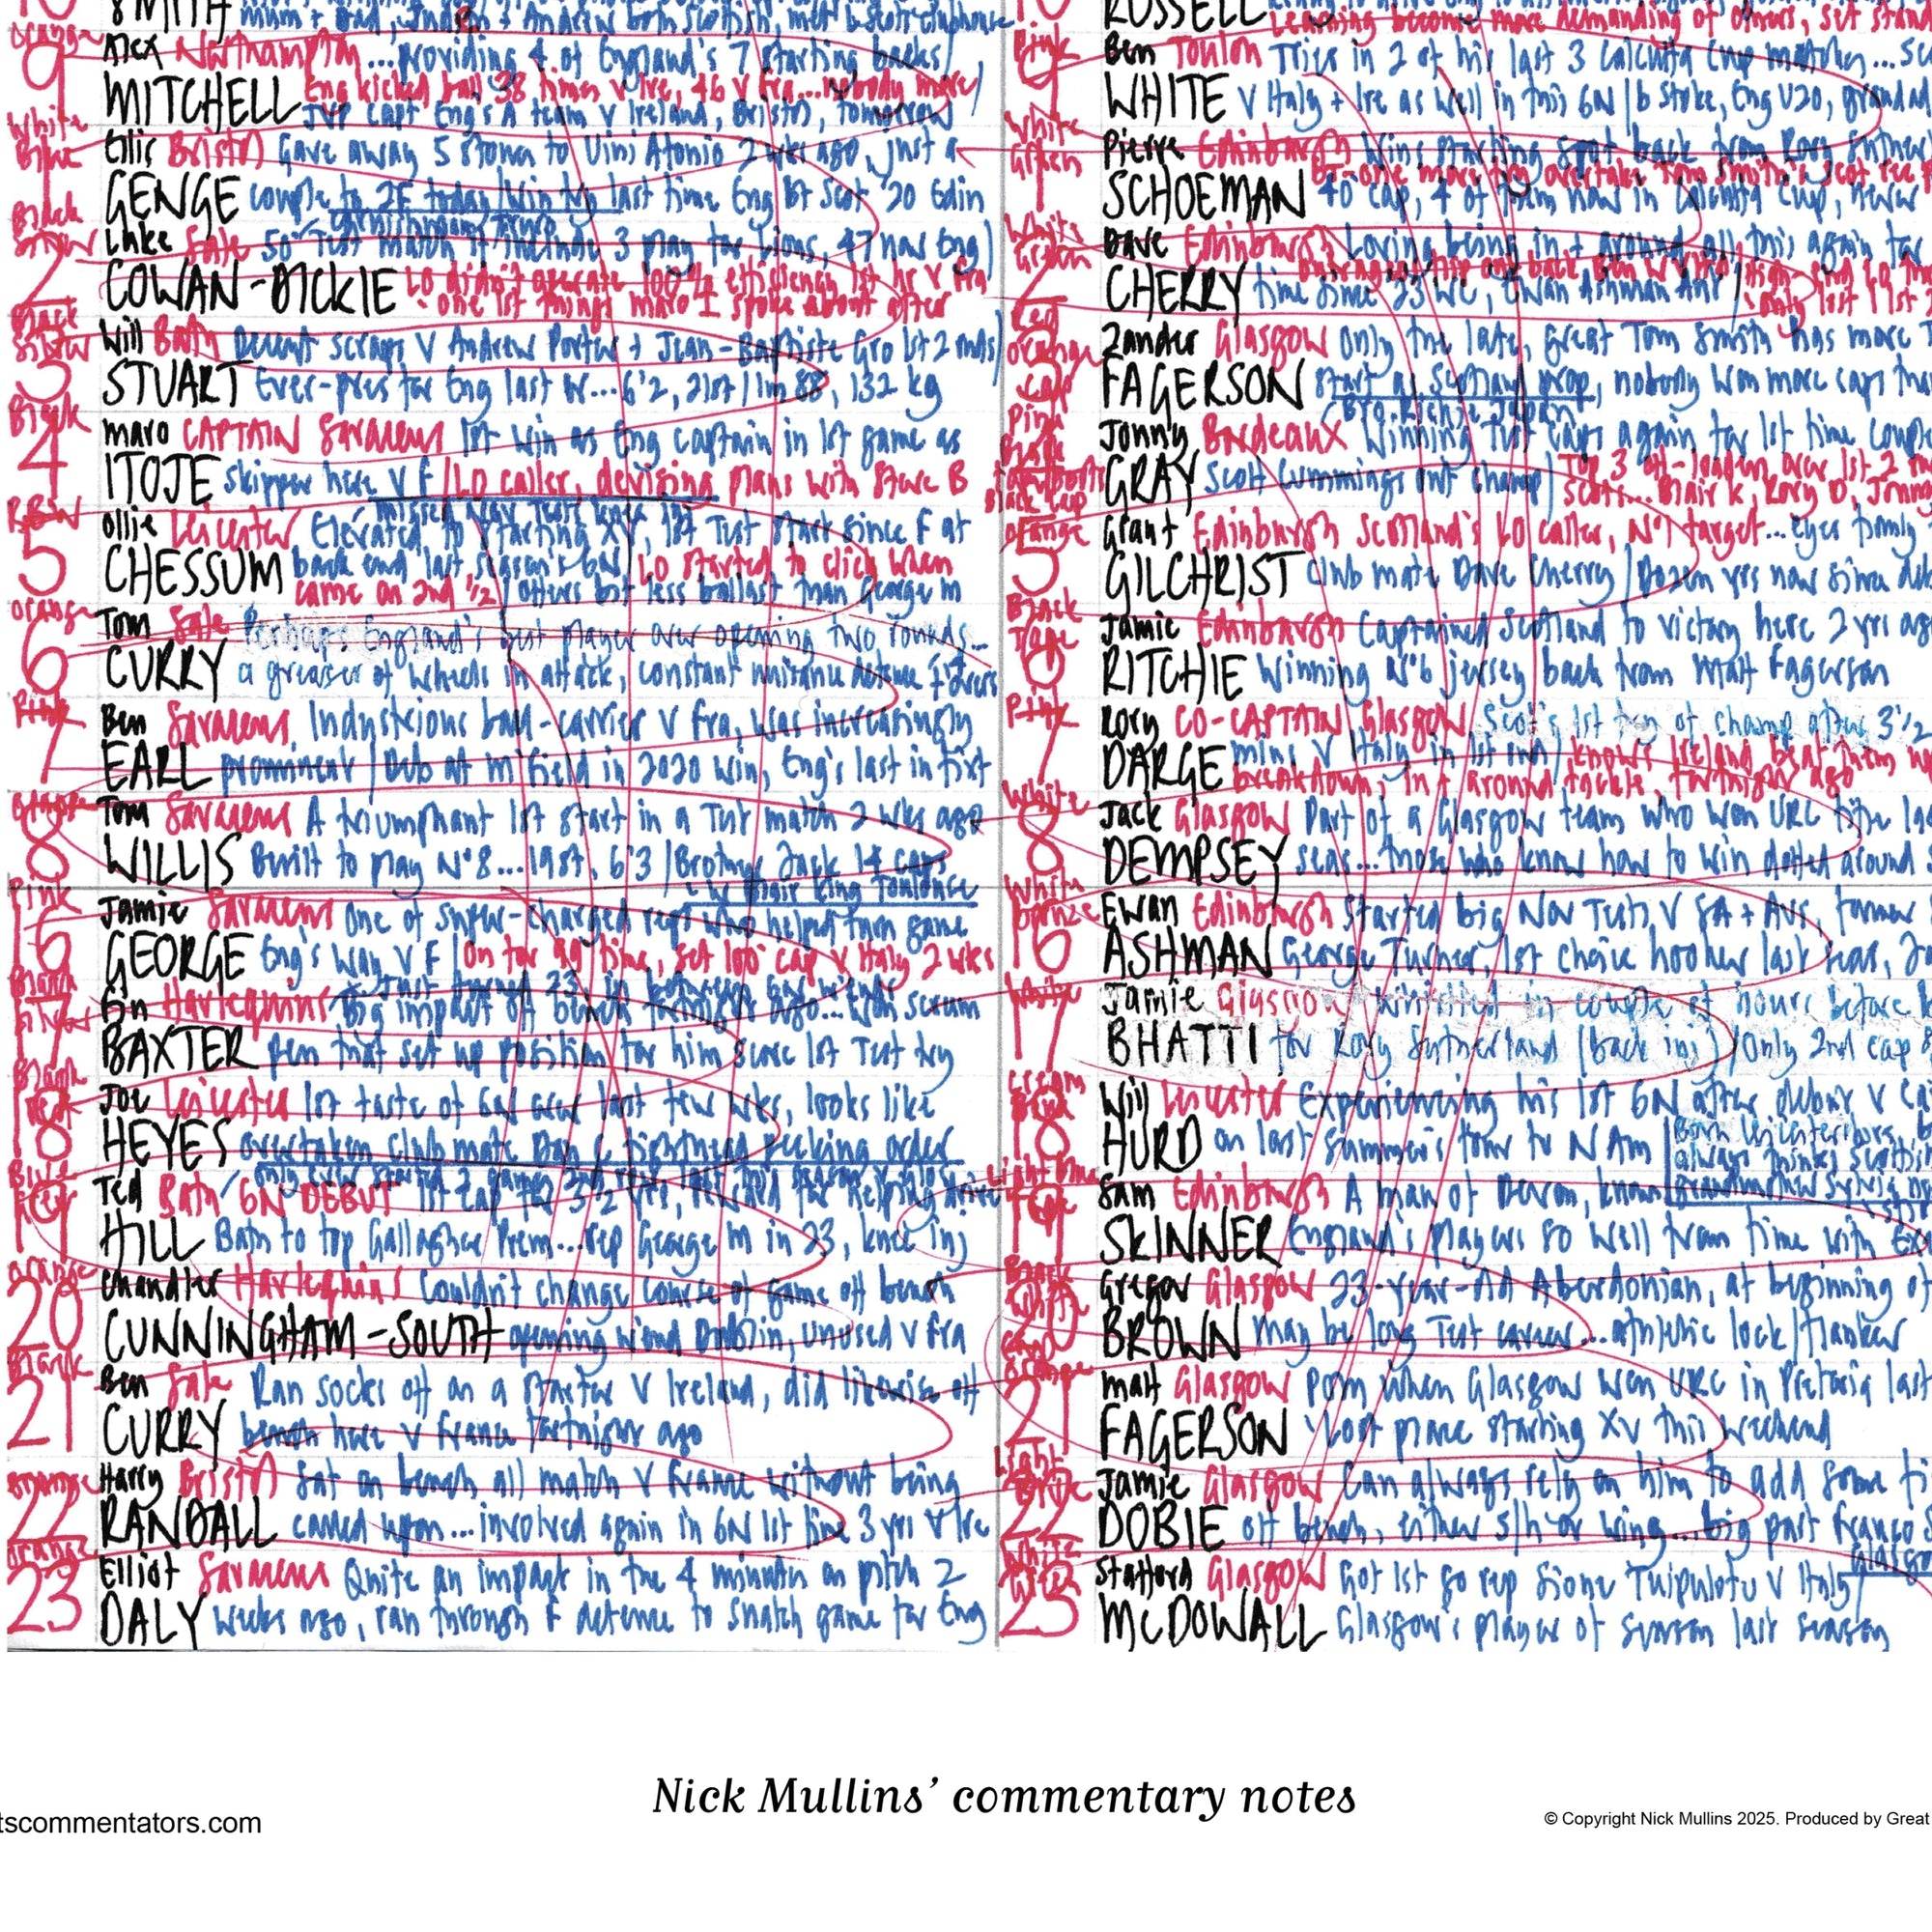 SMITH mum + dad, + Andrew both Scottish, met
9 Alex Northampton ...providing 4 of England's 7 starting backs
MITCHELL Eng kicked ball 38 times v Ire, 46 v Fra...nobody more
JVP capt Eng's A team v Ireland, Bristol, tomorrow
White
Blue
1 Ellis Bristol Gave away 5 stone to Uini Atonio 2 wks ago, just a
GENGE couple to ZF today / Win No last time Eng bt Scot '20 Edin
Black
2 Luke Sale 50th Test match if include 3 play for Lions, 47 now Eng
COWAN-DICKIE LO didn't operate 100% efficiency 1st hr v Fra
- one 1st things Maro I spoke about after
Black
Silver
3 Will Bath Decent scraps v Andrew Porter + Jean-Baptiste Gro 1st 2 rnds
STUART Ever-pres for Eng last yr...6'2, 21st / 1m 88, 132 kg
Black
4 Maro CAPTAIN Saracens 1st win as Eng captain in 1st game as
ITOJE skipper here v F / LO caller, devising plans with Steve B
missed Nov Tests knee inj
5 Ollie Leicester Elevated to starting XV, 1st Test start since F at
CHESSUM back end last season's 6N / LO started to click when
came on 2nd 1/2 / offers bit less ballast than George M
Orange
6 Tom Sale Perhaps England's best player over opening two rounds...
CURRY a greaser of wheels in attack, constant nuisance
Pink
7 Ben Saracens Industrious ball-carrier v Fra, was increasingly
EARL prominent / Deb at M'field in 2020 win, Eng's last in fixt
Orange
8 Tom Saracens A triumphant 1st start in a Test match 2 wks ago
WILLIS Built to play No8...19st, 6'3 / Brother Jack 14 caps
w Blair King Toulouse
Pink
16 Jamie Saracens One of super-charged reps who helped turn game
GEORGE Eng's way v F / On for 99th time, set 100th cap v Italy 2 wks
Black
17 Fin Harlequins Big impact off bench fortnight ago...won scrum
just turned 23 in between 6N w'ends
BAXTER pen that set up position for him score 1st Test try
Black
Red
18 Joe Leicester 1st taste of 6N over last few wks, looks like
HEYES overtaken club mate Dan C tighthead pecking order
Blue
Grey
19 Ted Bath 6N DEBUT 1st cap for 3 1/2 yrs, reward for helping drive
HILL Bath to top Gallagher Prem...rep George M in 23, knee inj
Orange
20 Chandler Harlequins Couldn't change course of game off bench
CUNNINGHAM-SOUTH opening w'end Dublin, unused v Fra
Black
21 Ben Sale Ran socks off as a starter v Ireland, did likewise off
CURRY bench here v France fortnight ago
Orange
22 Harry Bristol Sat on bench all match v France without being
RANDALL called upon...involved again in 6N 1st time 3 yrs v Ire
Orange
23 Elliot Saracens Quite an impact in the 4 minutes on pitch 2
DALY weeks ago, ran through F defence to snatch game for Eng
10
RUSSELL Learning become more demanding of others, set stan
Pink
9 Ben Toulon Tries in 2 of his last 3 Calcutta Cup matches...
WHITE v Italy + Ire as well in this 6N / b Stoke, Eng U20,
White
Green
1 Pierre Edinburgh Wins starting spot back from Rory Suther
BT - one more try overtake Tom Smith's Scot rec
SCHOEMAN 40th cap, 4 of them now in Calcutta Cup, never
White
Green
2 Dave Edinburgh Loving being in + around all this again for
CHERRY time since 23 WC, Ewan Ashman Ank
Red
Orange
cap
3 Zander Glasgow Only the late, great Tom Smith has more
FAGERSON start as Scotland prop, nobody won more caps tha
(Bro. Richie Japan
Pink
Black
Black cap
4 Jonny Bordeaux Winning Test caps again for 1st time couple
GRAY Scott Cummings out champ / Top 3 off-loaders over 1st 2
Scots...Blair K, Rory D, Jonny
Orange
5 Grant Edinburgh Scotland's LO caller, No1 target...eyes firmly
GILCHRIST club mate Dave Cherry / Dozen yrs now since
Black
Tape
6 Jamie Edinburgh Captained Scotland to victory here 2 yrs ag
RITCHIE Winning No6 jersey back from Matt Fagerson
Pink
7 Rory CO-CAPTAIN Glasgow Scot's 1st try of champ after 3 1/2
DARGE mins v Italy in 1st rnd / knows Ireland beat them
breakdown, in + around tackle, fortnight ago
White
8 Jack Glasgow Part of a Glasgow team who won URC title la
DEMPSEY seas...those who know how to win dotted around
White
Bronze
16 Ewan Edinburgh Started big Nov Tests v SA + Aus, former
ASHMAN George Turner, 1st choice hooker last year,
White
17 Jamie Glasgow Drafted in couple of hours before
BHATTI for Rory Sutherland (back inj) / Only 2nd cap
Cream
18 Will Leicester Experiencing his 1st 6N after debut v Ca
HURD on last summer's tour to N Am
Born Leicester
always thinks Scottish
Light-blue
19 Sam Edinburgh A man of Devon, knows
SKINNER England's players so well from time with Ex
Black
White
20 Gregor Glasgow 23-year-old Aberdonian, at beginning of
BROWN may be long Test career...athletic lock / flanker
Orange
21 Matt Glasgow POTM when Glasgow won URC in Pretoria last
FAGERSON Lost place starting XV this weekend
Light
Blue
22 Jamie Glasgow Can always rely on him to add some
DOBIE off bench, either s/h or wing...big part Franco
White
23 Stafford Glasgow Got 1st go rep Sione Tuipulotu v Italy
MCDOWALL Glasgow's player of season last season
Nick Mullins' commentary notes
tscommentators.com
© Copyright Nick Mullins 2025. Produced by Great